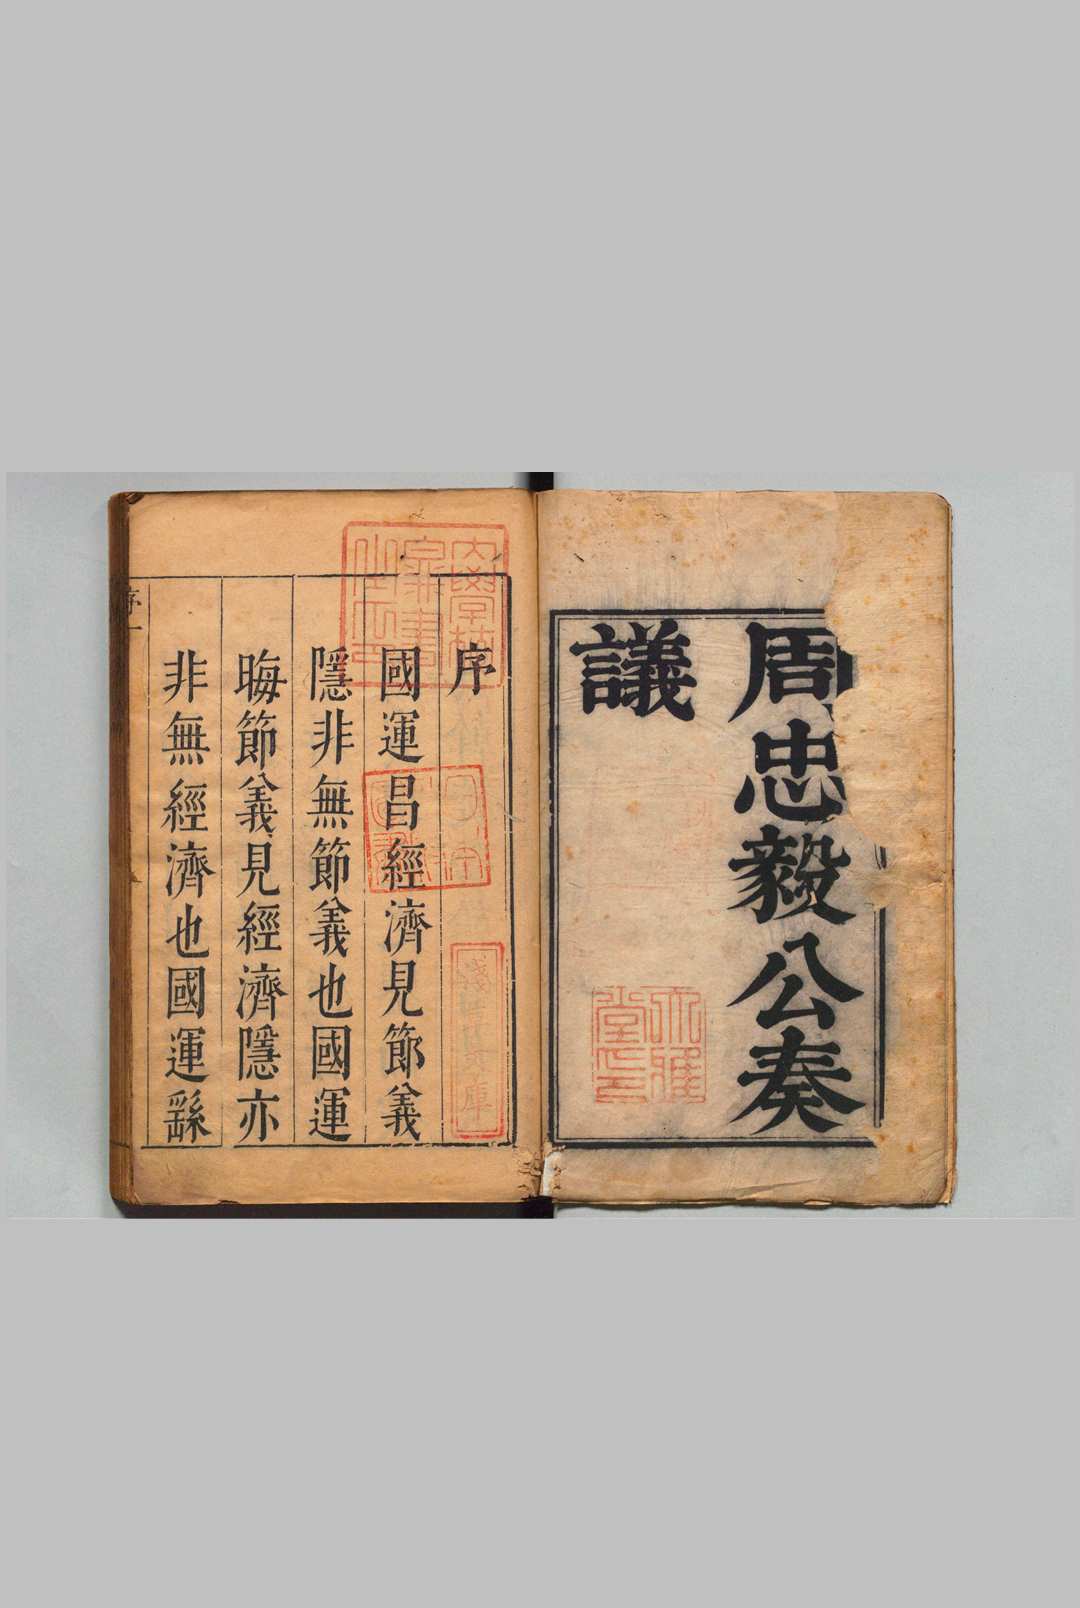 周忠毅公奏
議
序
國運昌經濟見節義
隱非無節義也國運
晦節義見經濟隱亦
非無經濟也國運繇
序一
淺草文庫